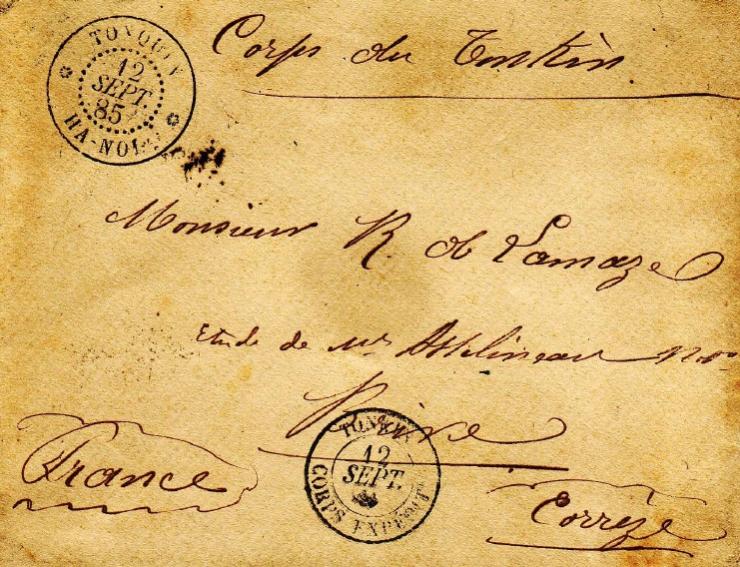 Corps du Tonkin
TONQUIN
12
SEPT.
85
HA-NOI
Monsieur R. de Lamaze
Etude de Me Asselineau
TONKIN
12
SEPT.
CORPS EXPEDIT
France
Corrèze